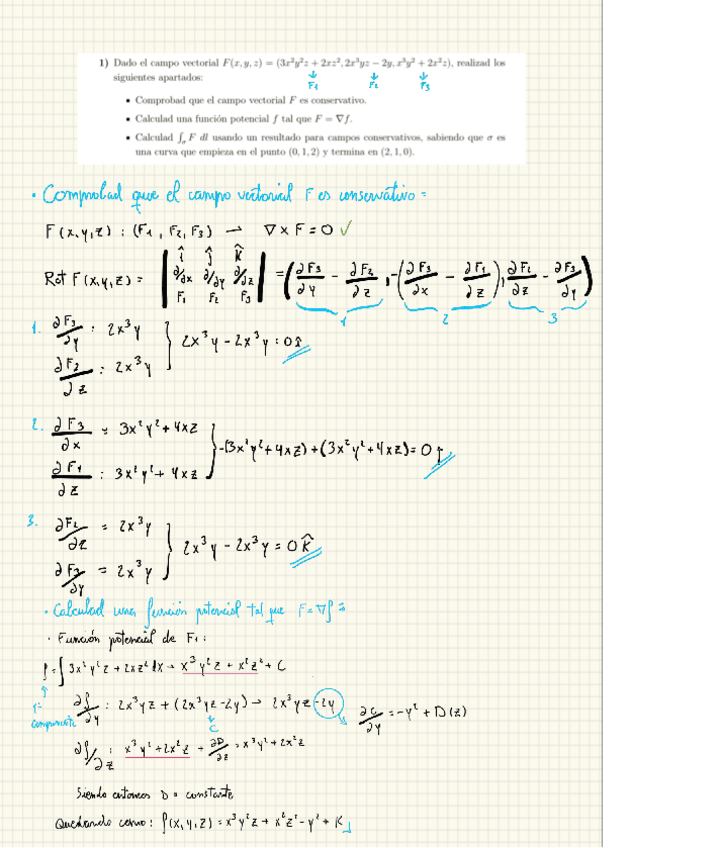 1) Dado el campo vectorial F(x, y, z) = (3x²y²z + 2xz², 2x³yz − 2y, x³y² + 2x²z), realizad los
siguientes apartados:
F1 F2 F3
• Comprobad que el campo vectorial F es conservativo.
• Calculad una función potencial f tal que F = ∇f.
• Calculad ∫σ F dl usando un resultado para campos conservativos, sabiendo que σ es
una curva que empieza en el punto (0, 1, 2) y termina en (2, 1, 0).
· Comprobad que el campo vectorial F es conservativo =
F(x,y,z) : (F1, F2, F3) → ∇ × F = 0 ✓
Rot F(x,y,z) = | î ĵ k̂ ; ∂/∂x ∂/∂y ∂/∂z ; F1 F2 F3 | = (∂F3/∂y − ∂F2/∂z, −(∂F3/∂x − ∂F1/∂z), ∂F2/∂z − ∂F3/∂y)
1 2 3
1. ∂F3/∂y : 2x³y
∂F2/∂z : 2x³y } 2x³y − 2x³y : 0 î
2. ∂F3/∂x : 3x²y² + 4xz
∂F1/∂z : 3x²y² + 4xz } −(3x²y² + 4xz) + (3x²y² + 4xz) = 0 ĵ
3. ∂F2/∂z = 2x³y
∂F3/∂y = 2x³y } 2x³y − 2x³y = 0 k̂
· Calculad una función potencial tal que F = ∇f =
· Función potencial de F1 :
f = ∫ 3x²y²z + 2xz² dx → x³y²z + x²z² + C
1ª componente
∂f/∂y : 2x³yz + (2x³yz − 2y) → 2x³yz − 2y ∂C/∂y = −y² + D(z)
C
∂f/∂z : x³y² + 2x²z + ∂D/∂z = x³y² + 2x²z
Siendo entonces D = constante
Quedando como : f(x,y,z) = x³y²z + x²z² − y² + K